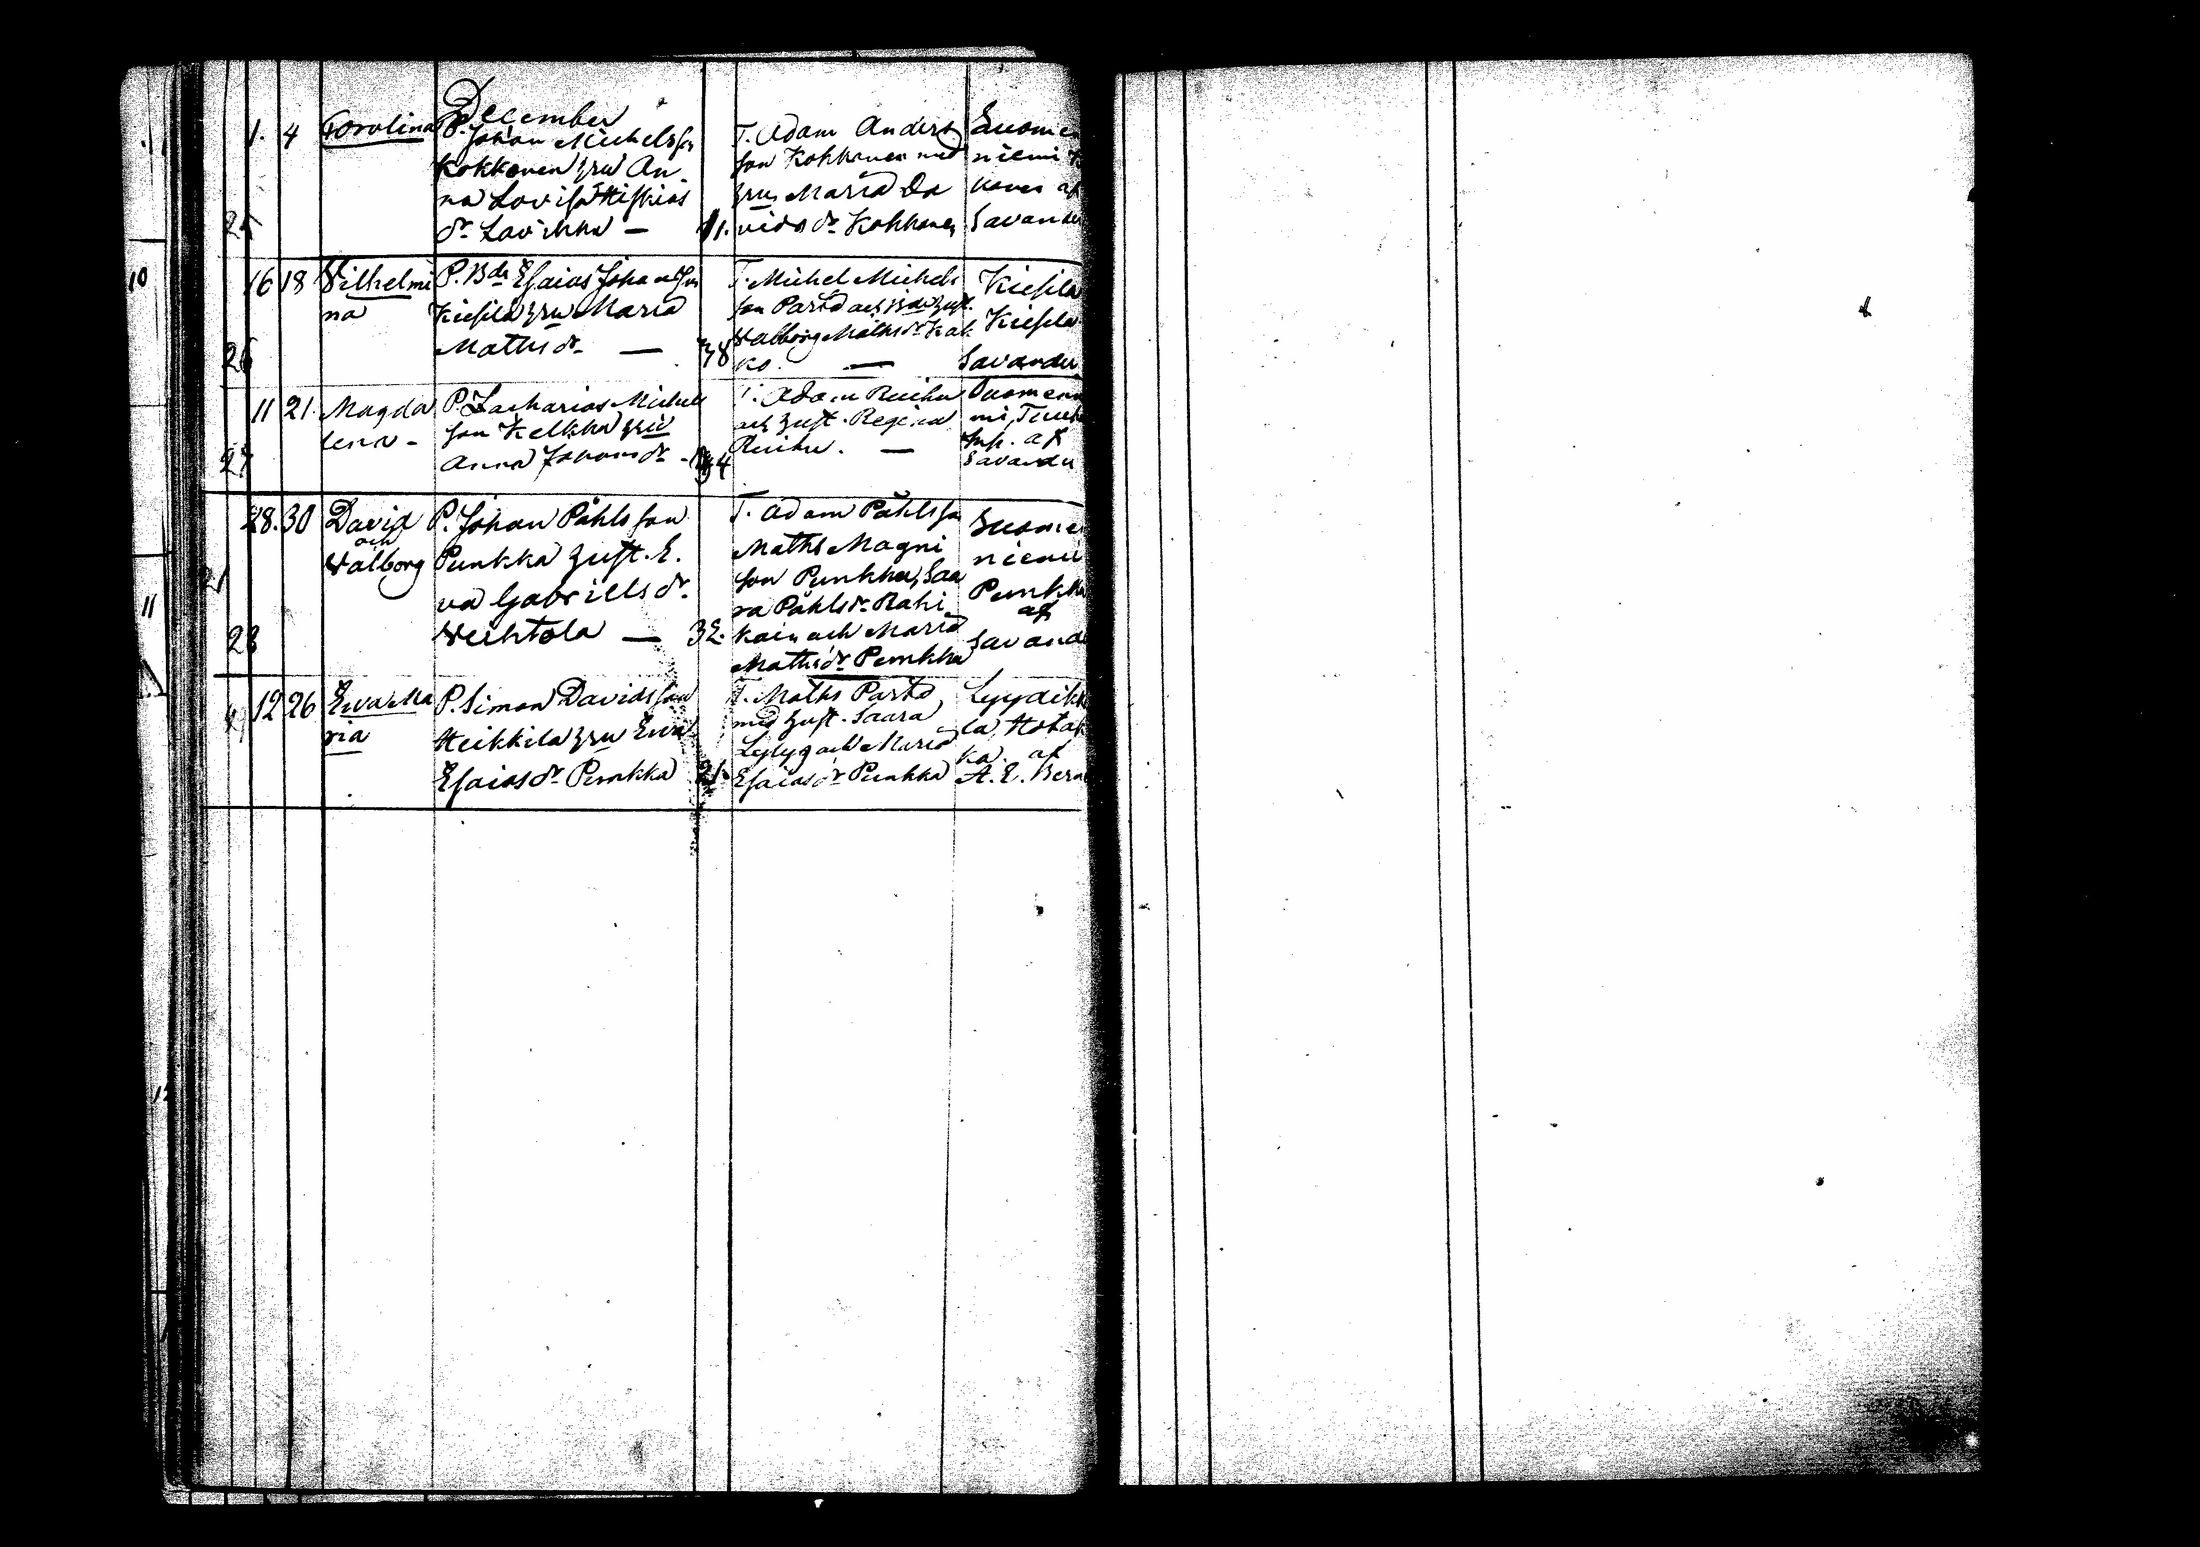 December
1. 4 Carolina P. Johan Michelsson
Kokkonen hru An-
na Lovisa Hiskias
dr Lavikka — 
T. Adam Anders
son Kokkonen med
hru Maria Da
vids dr Kokkonen
Suomen
niemi
af
Savander
25
16 18 Vilhelmi
na
P. Bdn Esaias Johansson
Kiesilä hru Maria
Maths dr — 38
T. Michel Michels
son Partd och Bde hust.
Valborg Maths dr Kak
ko. —
Kiesilä
Kiesilä
Savander
26
11 21. Magda
lena -
P. Zacharias Michels
son Kelkka hru
Anna Johans dr - 34
T. Adam Ruihu
och hust. Regina
Ruihu. —
Suomenn
af
Savander
27
28. 30 David
och
Valborg
P. Johan Påhlsson
Punkka hust. E.
va Gabriells dr
Vechtola — 32.
T. Adam Påhlsson
Maths Magni
son Punkka, Saa
ra Påhls dr Rahi
kain och Maria
Maths dr Punkka
Suomen
niemi
Punkka
af
Savand
28
12 26 Eva Ma
ria
P. Simon Davidsson
Heikkilä hru Eva
Esaias dr Punkka 21.
T. Maths Partd
med hust. Saara
Lylyz och Maria
Esaias dr Punkka
Lyydikk
la, Hotak
ka. af
A. E. Bern
10
11